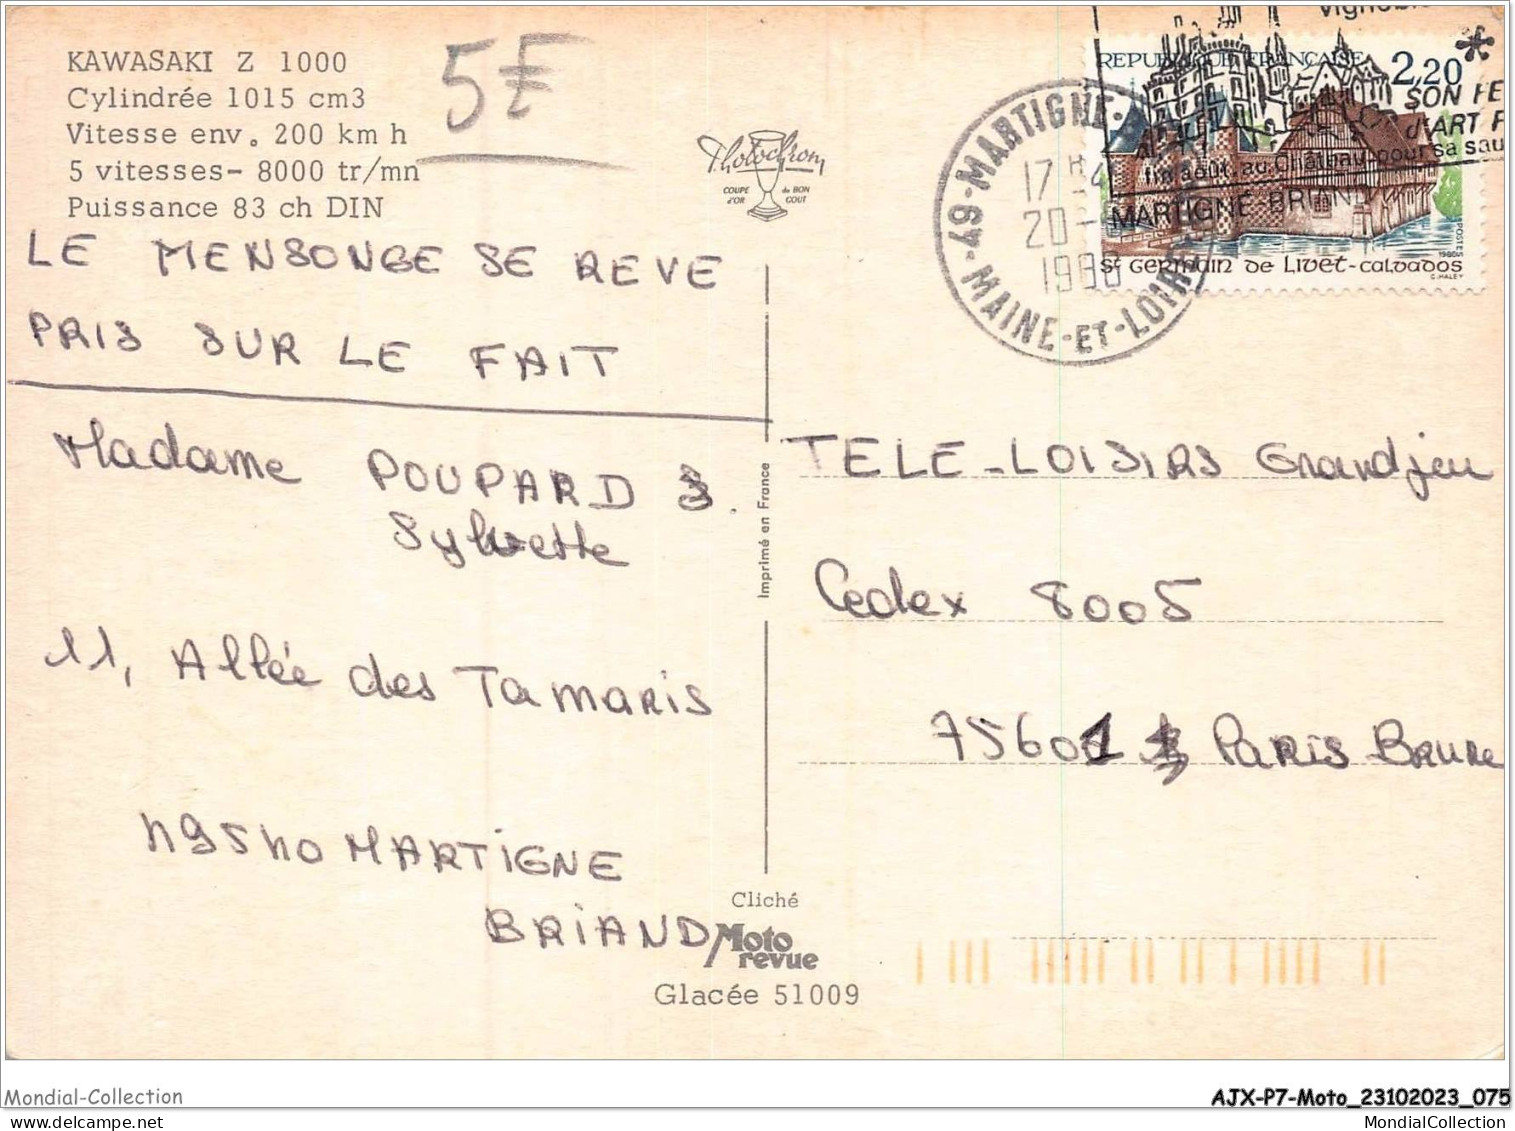 KAWASAKI Z 1000
Cylindrée 1015 cm3
Vitesse env. 200 km h
5 vitesses- 8000 tr/mn
Puissance 83 ch DIN
5F
Photochrom
COUPE d'OR du BON GOUT
REPUBLIQUE FRANÇAISE 2,20
St GERMAIN DE LIVET-CALVADOS
POSTES
49-MARTIGNE
17 H
20
1988
MAINE-ET-LOIRE
SON FE
d'ART F
fin août, au Château pour sa sau
MARTIGNÉ BRIAND
LE MENSONGE SE REVE
PRIS SUR LE FAIT
Madame POUPARD
Sylvette
11, Allée des Tamaris
49540 MARTIGNE
BRIAND
Imprimé en France
TELE-LOISIRS Grandjeu
Cedex 8005
75601 PARIS BRUNE
Cliché
Moto revue
Glacée 51009
Mondial-Collection
AJX-P7-Moto_23102023_075
www.delcampe.net
MondialCollection